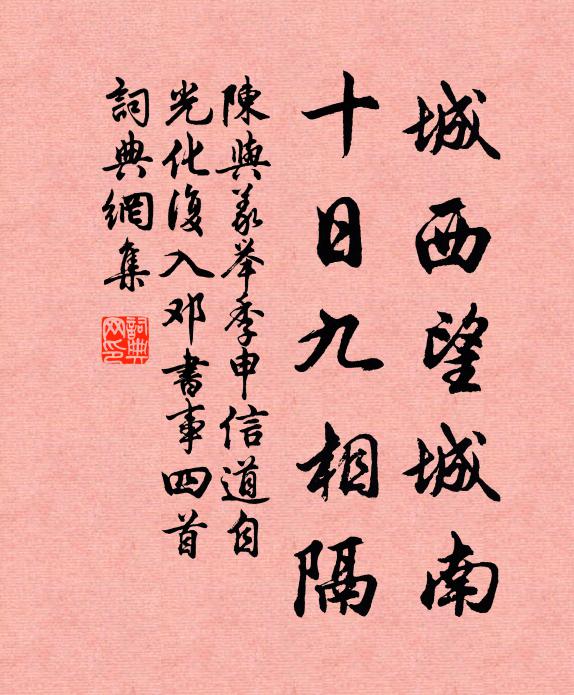 城西望城南
十日九相隔
陳與義举季申信道自
光化復入邓書事四首
詞典網集
詞典
网印